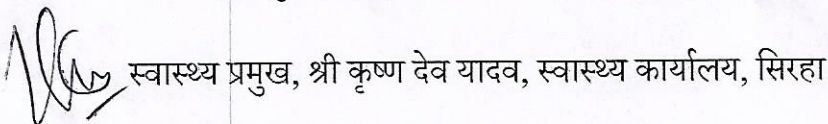 स्वास्थ्य प्रमुख, श्री कृष्ण देव यादव, स्वास्थ्य कार्यालय, सिरहा